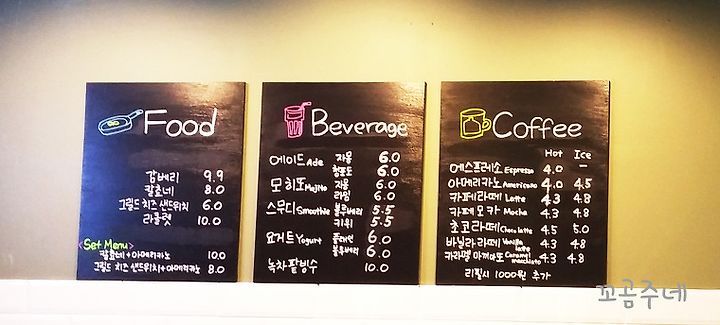 Food
감베리 9.9
칼초네 8.0
그릴드 치즈 샌드위치 6.0
라클렛 10.0
<Set Menu>
칼초네+아메리카노 10.0
그릴드 치즈 샌드위치+아메리카노 8.0
Beverage
에이드 Ade 자몽 6.0
청포도 6.0
모히또 Mojito 자몽 6.0
라임 6.0
스무디 Smoothie 블루베리 5.5
키위 5.5
요거트 Yogurt 플레인 6.0
블루베리 6.0
녹차팥빙수 10.0
Coffee
Hot Ice
에스프레소 Espresso 4.0 –
아메리카노 Americano 4.0 4.5
카페라떼 Latte 4.3 4.8
카페모카 Mocha 4.3 4.8
초코라떼 Chocolatte 4.5 5.0
바닐라라떼 Vanilla latte 4.3 4.8
카라멜 마끼아또 Caramel macchiato 4.3 4.8
리필시 1000원 추가
꼬곰주네